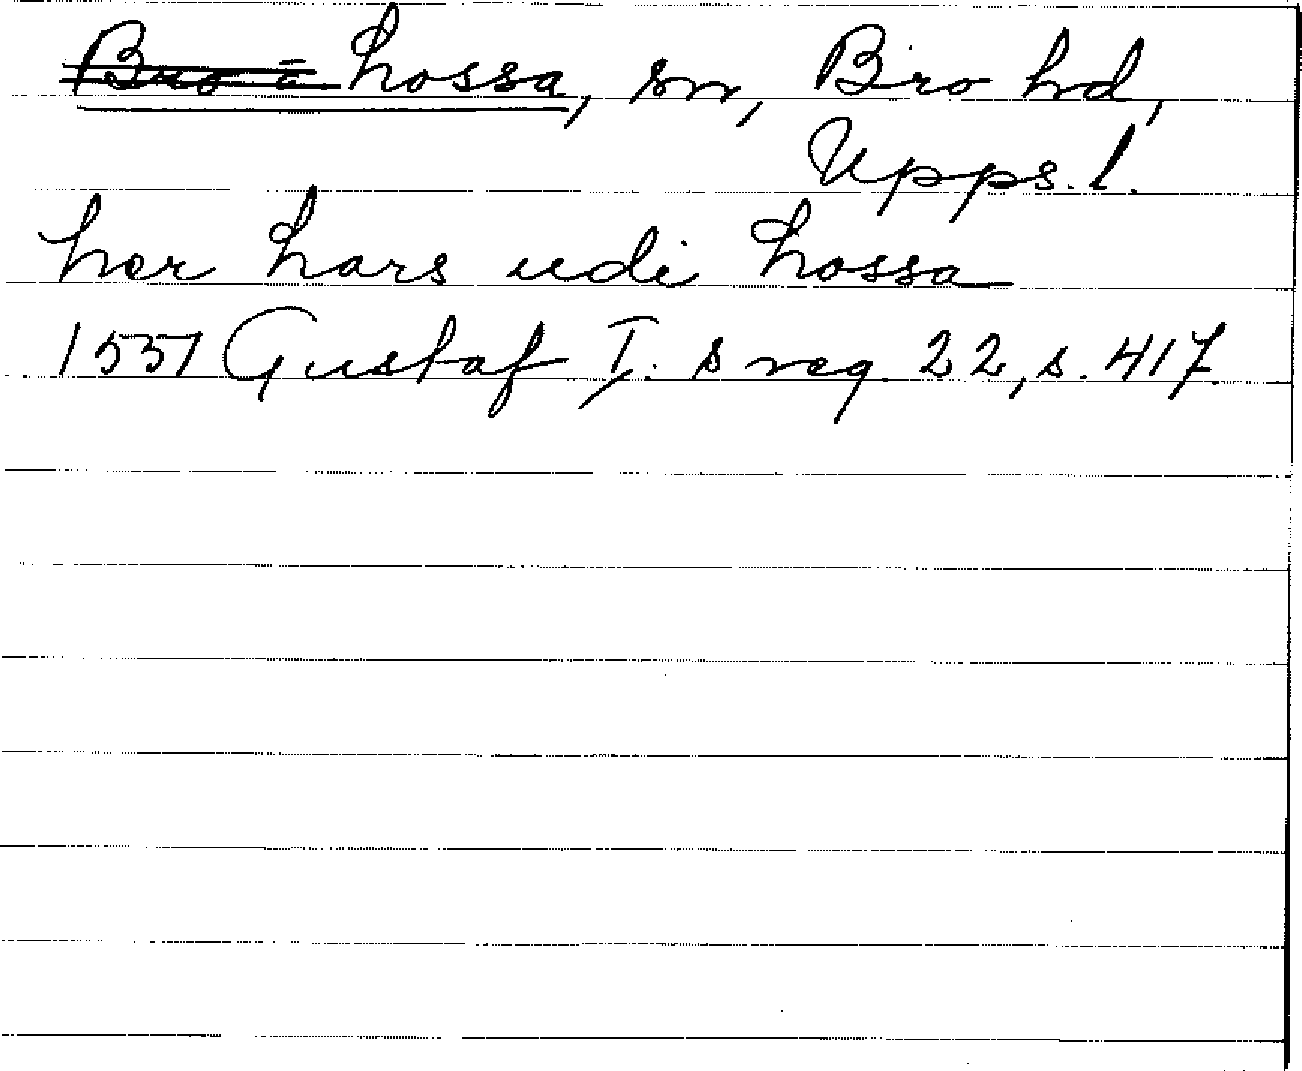 Bro o Lossa, sn, Bro hd,
Upps. l.
her Lars udi Lossa
1551 Gustaf I:s reg 22, s. 417.